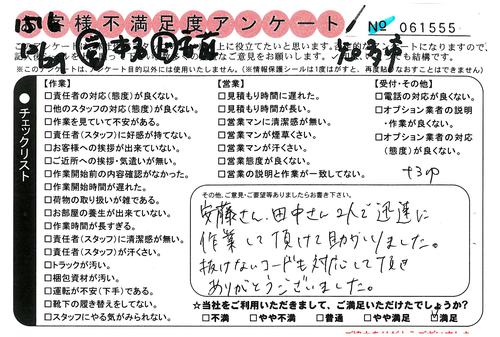 お客様不満足度アンケート
№ 061555
このアンケートは
上に役立てたいと思います。
なアンケートになりますので、
のご意見をお願いします。
も結構です。
※このアンケートは、アンケート目的以外には使用いたしません。(※情報保護シールは1度はがすと、再度貼
なおすことはできません)
●チェックリスト
【作業】
□責任者の対応(態度)が良くない。
□他のスタッフの対応(態度)が良くない。
□作業を見ていて不安がある。
□責任者(スタッフ)に好感が持てない。
□お客様への挨拶が出来ていない。
□ご近所への挨拶・気遣いが無い。
□作業開始前の内容確認がなかった。
□作業開始時間が遅れた。
□荷物の取り扱いが雑である。
□お部屋の養生が出来ていない。
□作業時間が長すぎる。
□責任者(スタッフ)に清潔感が無い。
□責任者(スタッフ)が汗くさい。
□トラックが汚い。
□梱包資材が汚い。
□運転が不安(下手)である。
□靴下の履き替えをしてない。
□スタッフにやる気がみられない。
【営業】
□見積もり時間に遅れた。
□見積もり時間が長い。
□営業マンに清潔感が無い。
□営業マンが煙草くさい。
□営業マンが汗くさい。
□営業態度が良くない。
□営業の説明と作業が一致してない。
【受付・その他】
□電話の対応が良くない。
□オプション業者の説明
・作業が良くない。
□オプション業者の対応
(態度)が良くない。
その他、ご意見・ご要望等ありましたらお書き下さい。
安藤さん、田中さん2人で迅速に
作業して頂けて助かりました。
抜けないコードも対応して頂き
ありがとうございました。
☆当社をご利用いただきまして、ご満足いただけたでしょうか?
□不満 □やや不満 □普通 □やや満足 ☑満足